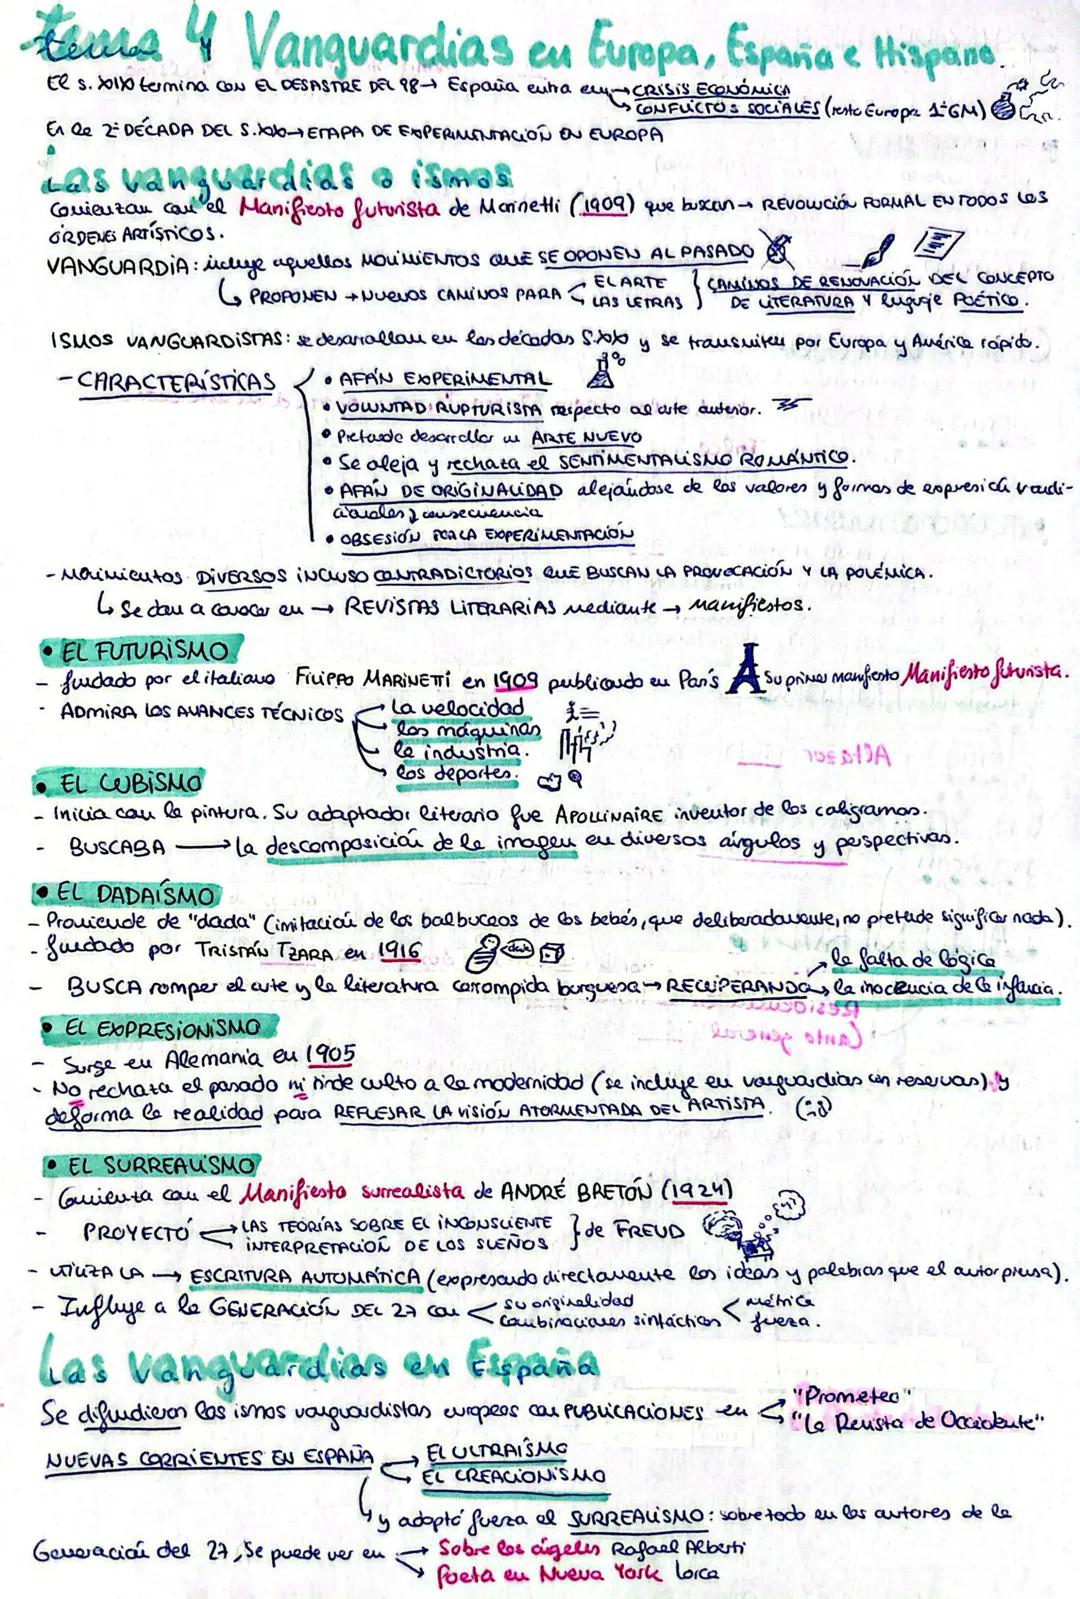 tema 4 Vanguardias en Europa, España e Hispano.
El s. XIX termina con EL DESASTRE DEL 98 → España entra en → CRISIS ECONÓMICA
→ CONFLICTOS SOCIALES (resto Europa 1ªGM)
En la 2ª DÉCADA DEL S.XX → ETAPA DE EXPERIMENTACIÓN EN EUROPA
Las vanguardias o ismos
Comienzan con el Manifiesto futurista de Marinetti (1909) que buscan → REVOLUCIÓN FORMAL EN TODOS LOS
ÓRDENES ARTÍSTICOS.
VANGUARDIA: incluye aquellos MOVIMIENTOS QUE SE OPONEN AL PASADO
↳ PROPONEN → NUEVOS CAMINOS PARA < EL ARTE
LAS LETRAS } CAMINOS DE RENOVACIÓN DEL CONCEPTO
DE LITERATURA Y lenguaje POÉTICO.
ISMOS VANGUARDISTAS: se desarrollan en las décadas S.XX y se transmiten por Europa y América rápido.
- CARACTERÍSTICAS
• AFÁN EXPERIMENTAL
• VOLUNTAD RUPTURISTA respecto al arte anterior.
• Pretende desarrollar un ARTE NUEVO
• Se aleja y rechaza el SENTIMENTALISMO ROMÁNTICO.
• AFÁN DE ORIGINALIDAD alejándose de los valores y formas de expresión tradi-
cionales y consecuencia
• OBSESIÓN POR LA EXPERIMENTACIÓN
- Movimientos DIVERSOS INCLUSO CONTRADICTORIOS QUE BUSCAN LA PROVOCACIÓN Y LA POLÉMICA.
↳ Se dan a conocer en → REVISTAS LITERARIAS mediante → manifiestos.
• EL FUTURISMO
- fundado por el italiano FILIPPO MARINETTI en 1909 publicando en París Su primer manifiesto Manifiesto futurista.
- ADMIRA LOS AVANCES TÉCNICOS
La velocidad
las máquinas
la industria.
los deportes.
Altazor
• EL CUBISMO
- Inicia con la pintura. Su adaptador literario fue APOLLINAIRE inventor de los caligramas.
- BUSCABA → La descomposición de la imagen en diversos ángulos y perspectivas.
• EL DADAÍSMO
- Proviende de "dada" (imitación de los balbuceos de los bebés, que deliberadamente, no pretende significar nada).
- fundado por TRISTÁN TZARA en 1916
→ la falta de lógica
- BUSCA romper el arte y la literatura corrompida burguesa → RECUPERANDO → la inocencia de la infancia.
Residencia
Canto general
• EL EXPRESIONISMO
- Surge en Alemania en 1905
- No rechaza el pasado ni rinde culto a la modernidad (se incluye en vanguardias con reservas) y
deforma la realidad para REFLEJAR LA VISIÓN ATORMENTADA DEL ARTISTA.
• EL SURREALISMO
- Comienza con el Manifiesto surrealista de ANDRÉ BRETÓN (1924)
- PROYECTÓ → LAS TEORÍAS SOBRE EL INCONSCIENTE
→ INTERPRETACIÓN DE LOS SUEÑOS } de FREUD
- UTILIZA LA → ESCRITURA AUTOMÁTICA (expresando directamente las ideas y palabras que el autor piensa).
- Influye a la GENERACIÓN DEL 27 con < su originalidad < métrica
combinaciones sintácticas fuerza.
Las vanguardias en España
Se difundieron los ismos vanguardistas europeos con PUBLICACIONES en "Prometeo"
"La Revista de Occidente"
NUEVAS CORRIENTES EN ESPAÑA → EL ULTRAÍSMO
→ EL CREACIONISMO
↳ y adoptó fuerza el SURREALISMO: sobre todo en los autores de la
Generación del 27, Se puede ver en → Sobre los ángeles Rafael Alberti
→ Poeta en Nueva York Lorca